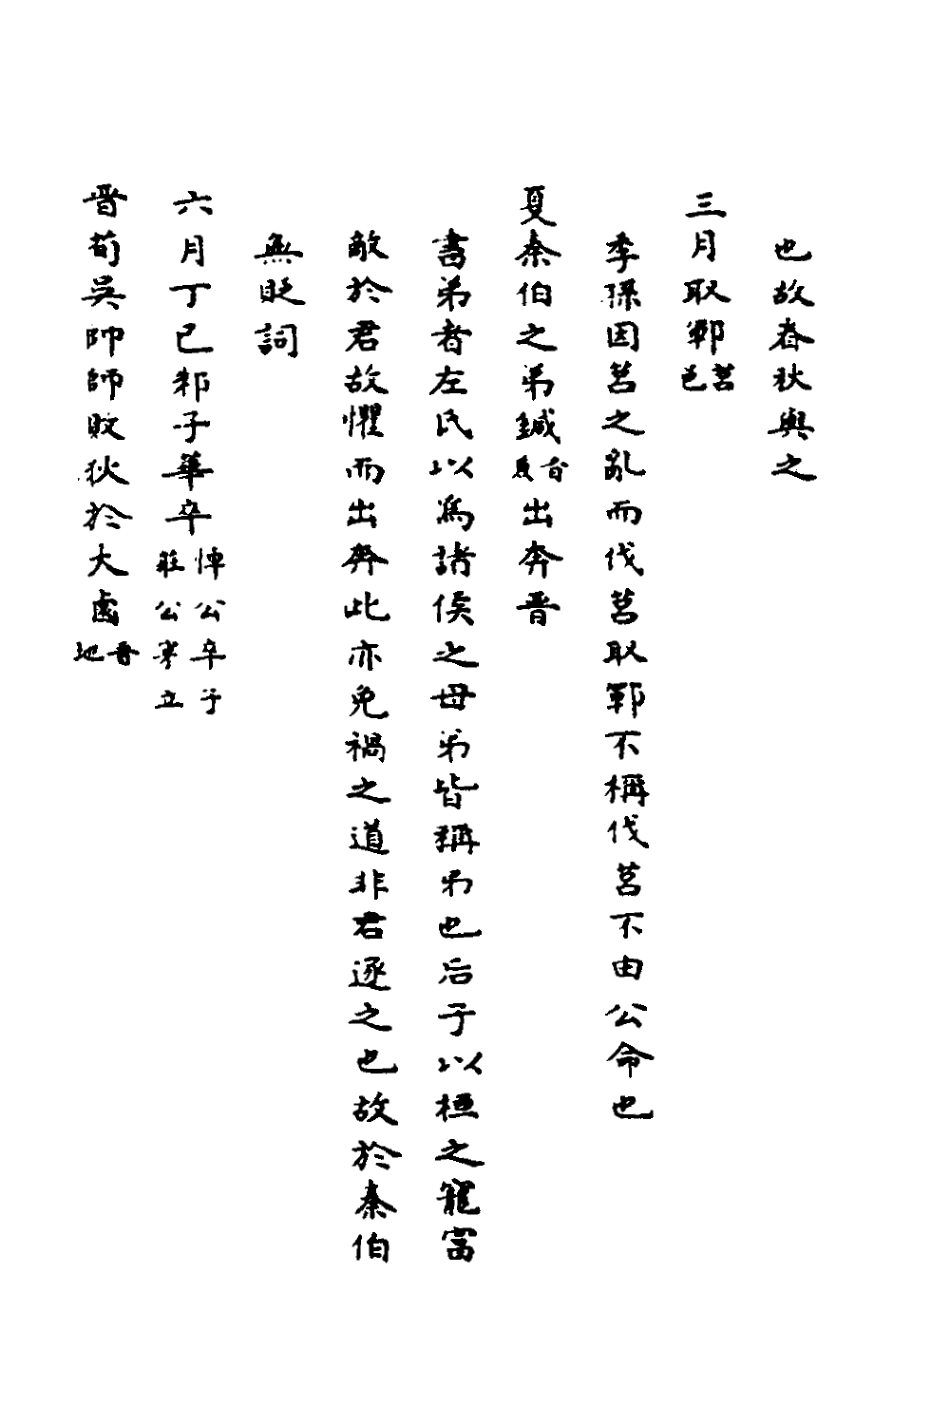 也故春秋與之
三月取鄆莒邑
季孫因莒之亂而伐莒取鄆不稱伐莒不由公命也
夏秦伯之弟鍼出奔晉
書弟者左氏以爲諸侯之母弟皆稱弟也后子以桓之寵富
敵於君故懼而出奔此亦免禍之道非君逐之也故於秦伯
無貶詞
六月丁巳邾子華卒悼公卒子莊公穿立
晉荀吳帥師敗狄於大鹵晉地